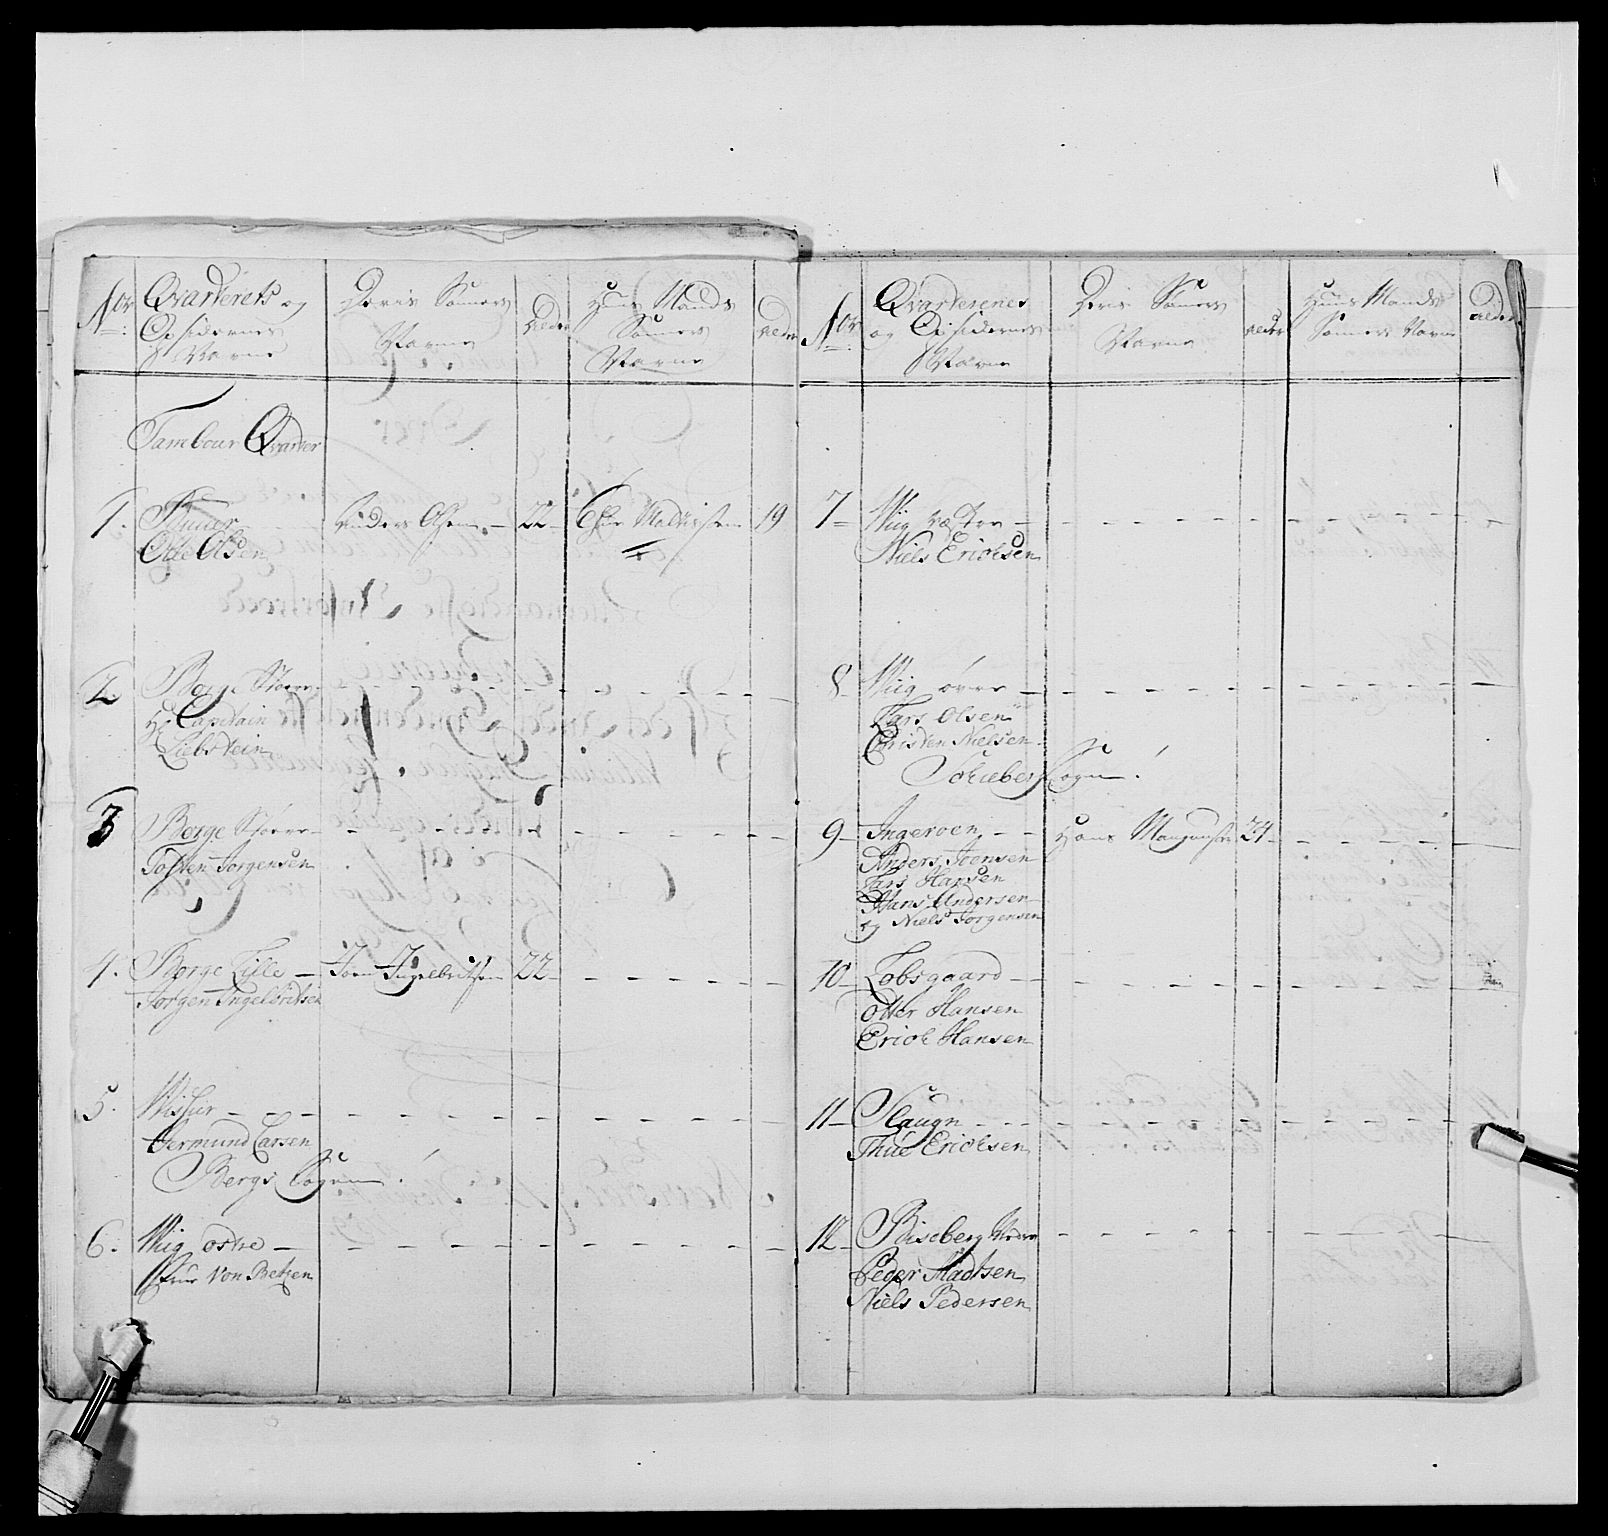 Nor
Qvarterets og
Opsidernes
Nafne
Deris Sønners
Nafne
Alder
Huus Mands
Sønners
Nafne
Alder
Tambour Qvarter
1.
Otte Olsen
Anders Olsen
22
19
2.
Borge Stoere
Hr Capitain
Liebstein
3
Borge Stoere
Tosten Jorgensen
4.
Borge Lille
Jorgen Ingelbritsen
Joen Ingelbritsen
22
5.
Germund Larsen
Bergs Sogn
6.
Wiig ostre
Frue Von Betzen
Nor
Qvarterenes
og Opsidernes
Nafne
Deris Sønners
Nafne
Alder
Huus Mands
Sønners Nafne
Alder
7
Wiig væstre
Niels Erichsen
8
Wiig øvre
Lars Olsen
Christen Nielsen
Schieberg Sogn
9
Ingeroen
Anders Joensen
Lars Hansen
Hans Andersen
og Niels Jorgensen
Hans Mangensen
24
10
Lobsgaard
Otter Hansen
Erich Hansen
11
Slaugn
Thue Erichsen
12
Biseberg Nedre
Peder Madtsen
Niels Pedersen